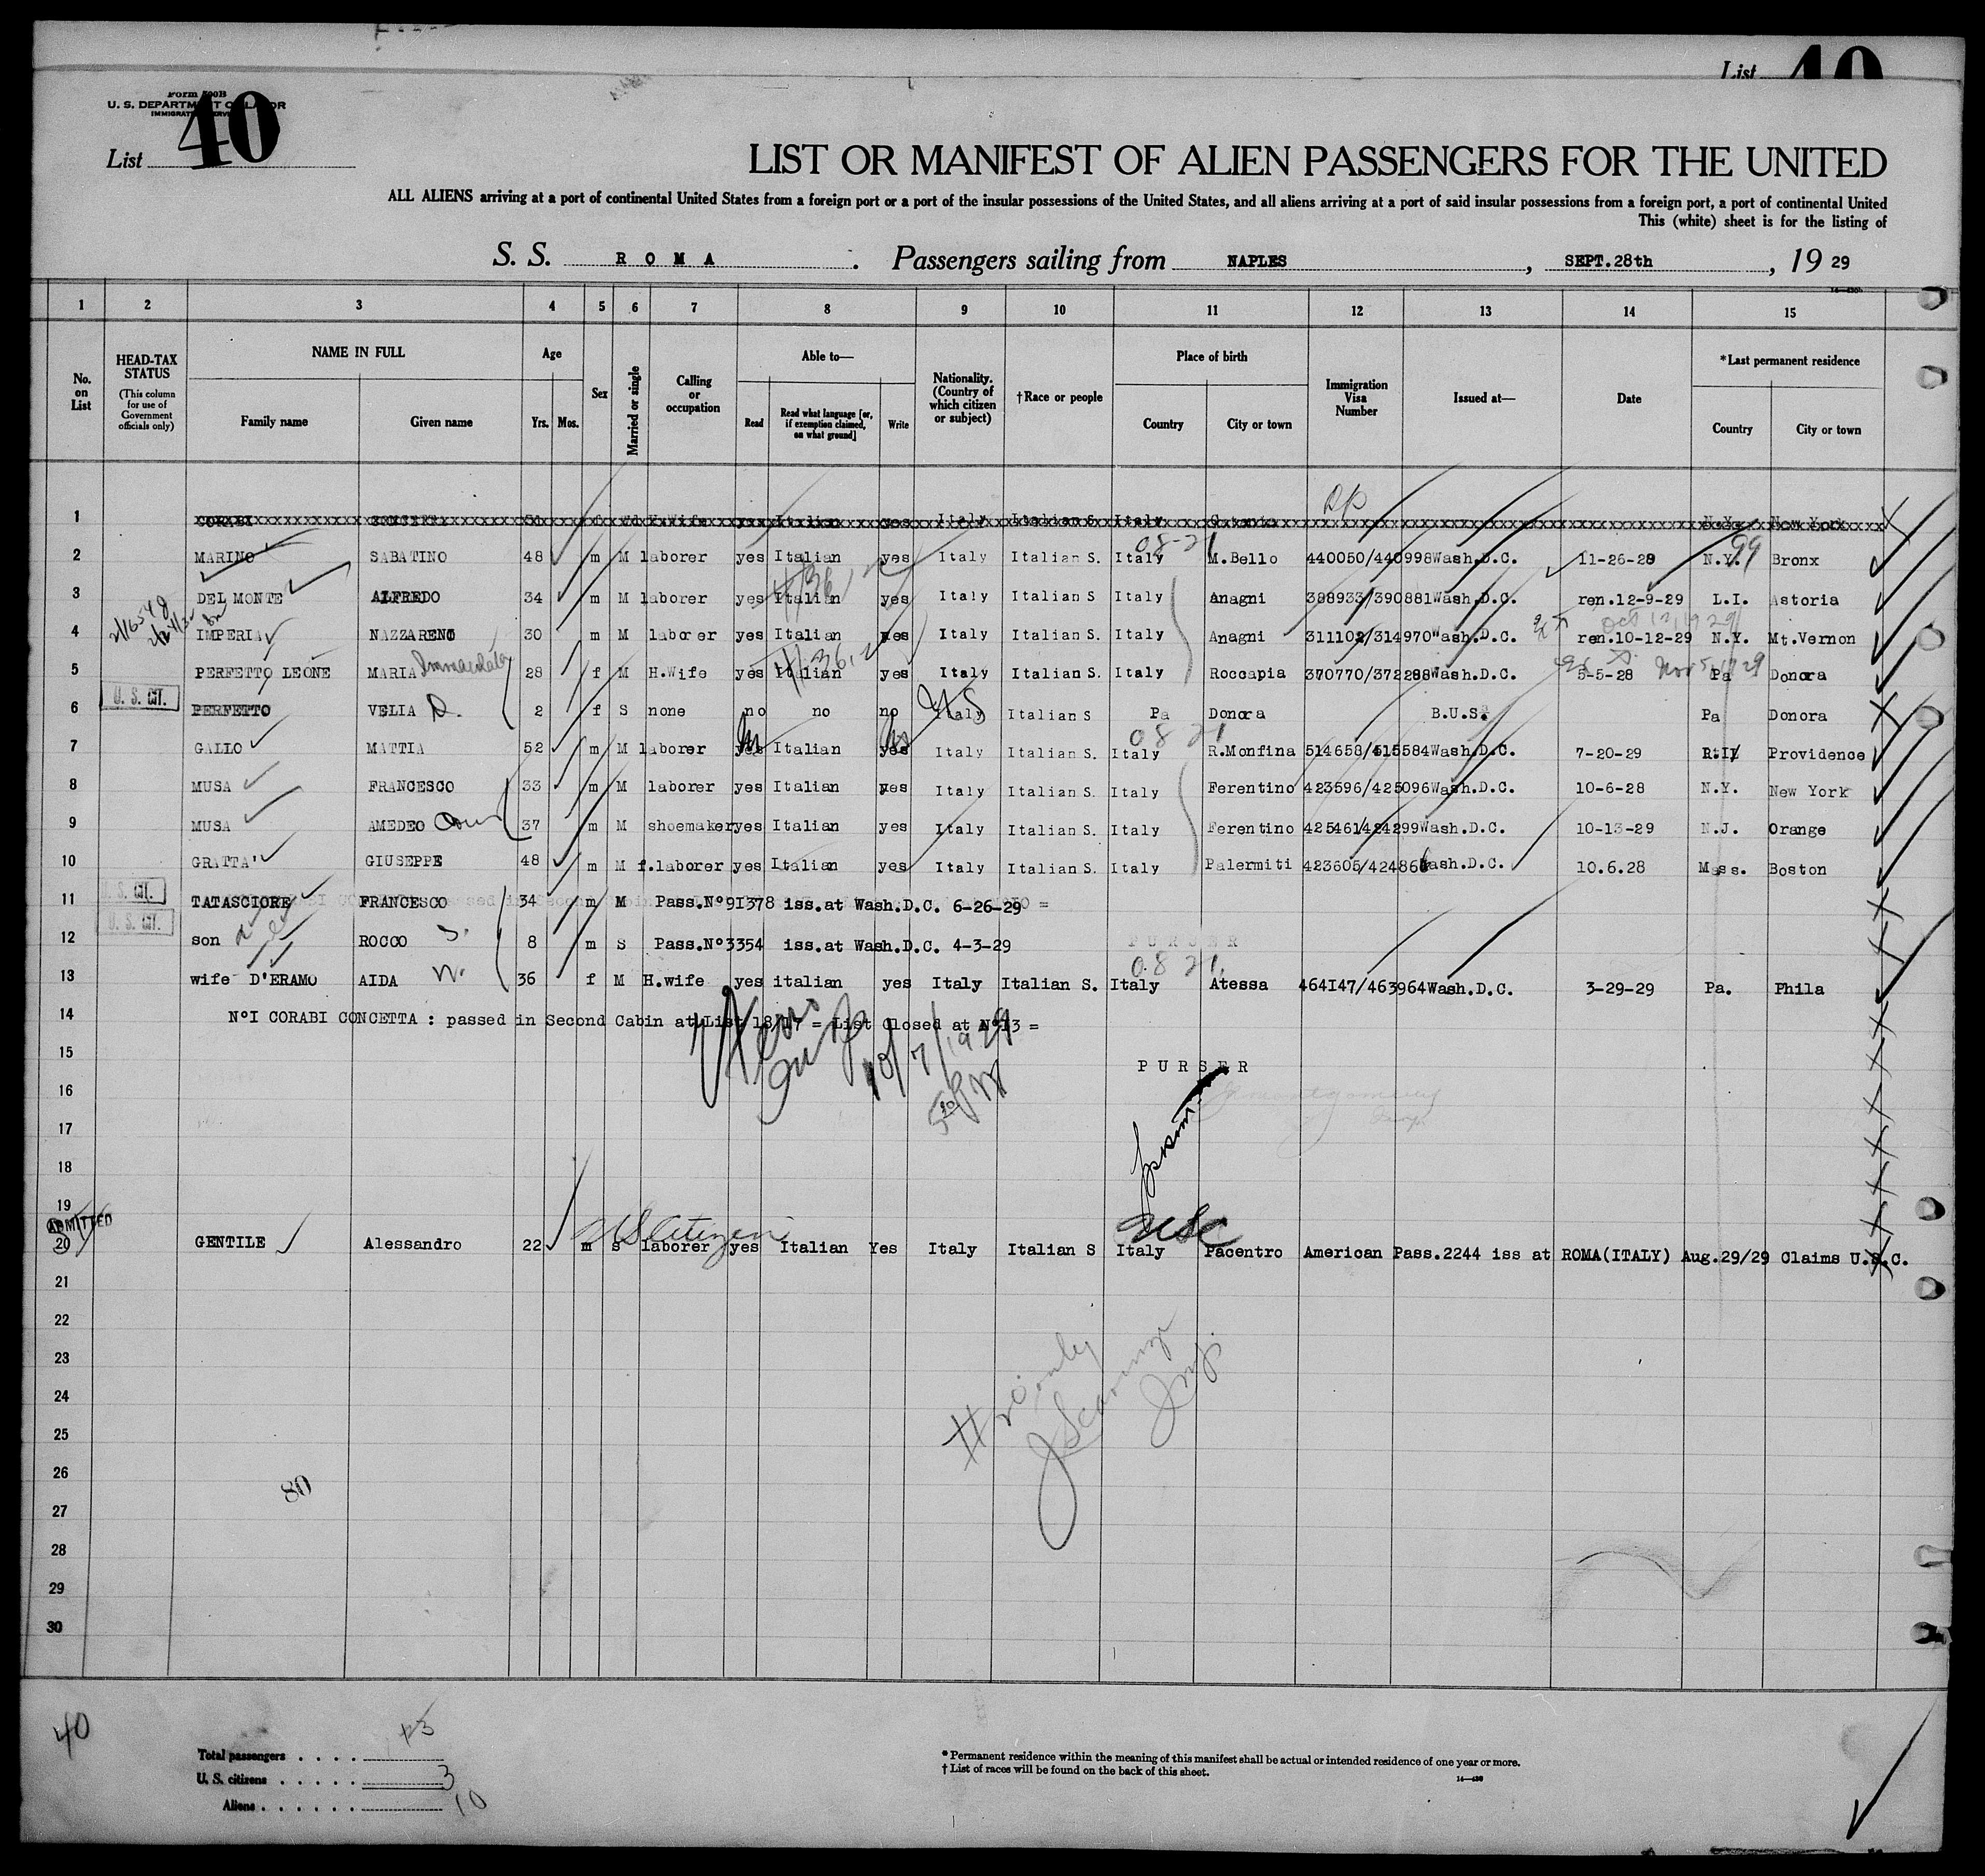 List 40
Form 500B
U. S. DEPARTMENT OF LABOR
IMMIGRATION SERVICE
List 40
LIST OR MANIFEST OF ALIEN PASSENGERS FOR THE UNITED
ALL ALIENS arriving at a port of continental United States from a foreign port or a port of the insular possessions of the United States, and all aliens arriving at a port of said insular possessions from a foreign port, a port of continental United
This (white) sheet is for the listing of
S. S. ROMA . Passengers sailing from NAPLES , SEPT.28th , 19 29
1 2 3 4 5 6 7 8 9 10 11 12 13 14 15
No. on List
HEAD-TAX STATUS
(This column for use of Government officials only)
NAME IN FULL
Family name Given name
Age
Yrs. Mos.
Sex
Married or single
Calling or occupation
Able to—
Read Read what language [or, if exemption claimed, on what ground] Write
Nationality. (Country of which citizen or subject)
†Race or people
Place of birth
Country City or town
Immigration Visa Number
Issued at—
Date
*Last permanent residence
Country City or town
1 CORABI CONCETTA H.Wife yes Italian yes Italy Italian S. Italy N.Y. New York
2 MARINO SABATINO 48 m M laborer yes Italian yes Italy Italian S. Italy M.Bello 440050/440998 Wash.D.C. 11-26-28 N.Y. Bronx
08-21
99
3 DEL MONTE ALFREDO 34 m M laborer yes Italian yes Italy Italian S Italy Anagni 388933/390881 Wash.D.C. ren.12-9-29 L.I. Astoria
4 IMPERIA NAZZARENO 30 m M laborer yes Italian yes Italy Italian S. Italy Anagni 311102/314970 Wash.D.C. ren.10-12-29 N.Y. Mt.Vernon
Oct 12, 1929
5 PERFETTO LEONE MARIA Immaculata 28 f M H.Wife yes Italian yes Italy Italian S. Italy Roccapia 370770/372288 Wash.D.C. 5-5-28 Pa Donora
Nov 5, 1929
U. S. CIT.
6 PERFETTO VELIA D. 2 f S none no no no Italy Italian S Pa Donora B.U.S. Pa Donora
US
7 GALLO MATTIA 52 m M laborer yes Italian yes Italy Italian S. Italy R.Monfina 514658/515584 Wash.D.C. 7-20-29 R.I. Providence
08 21
8 MUSA FRANCESCO 33 m M laborer yes Italian yes Italy Italian S. Italy Ferentino 423596/425096 Wash.D.C. 10-6-28 N.Y. New York
9 MUSA AMEDEO 37 m M shoemaker yes Italian yes Italy Italian S. Italy Ferentino 425461424299 Wash.D.C. 10-13-29 N.J. Orange
10 GRATTA' GIUSEPPE 48 m M f.laborer yes Italian yes Italy Italian S. Italy Palermiti 423605/42486 Wash.D.C. 10.6.28 Mass. Boston
U. S. CIT.
11 TATASCIORE FRANCESCO 34 m M Pass.N°91378 iss.at Wash.D.C. 6-26-29 =
U. S. CIT.
12 son ROCCO S. 8 m S Pass.N°3354 iss.at Wash.D.C. 4-3-29
PURSER
08 21
13 wife D'ERAMO AIDA W. 36 f M H.wife yes italian yes Italy Italian S. Italy Atessa 464I47/463964 Wash.D.C. 3-29-29 Pa. Phila
14 N°I CORABI CONCETTA : passed in Second Cabin at List 18/17 = List Closed at N°I3 =
10/7/1929
15 PURSER
16
17
18
19
ADMITTED
US Citizen
USC
20 GENTILE Alessandro 22 m s laborer yes Italian Yes Italy Italian S Italy Pacentro American Pass.2244 iss at ROMA(ITALY) Aug.29/29 Claims U.S.C.
21
22
23
# 20 only
24
25
26
80
27
28
29
30
40
Total passengers . . . . 13
U. S. citizens . . . . . 3
Aliens . . . . . . 10
* Permanent residence within the meaning of this manifest shall be actual or intended residence of one year or more.
† List of races will be found on the back of this sheet.